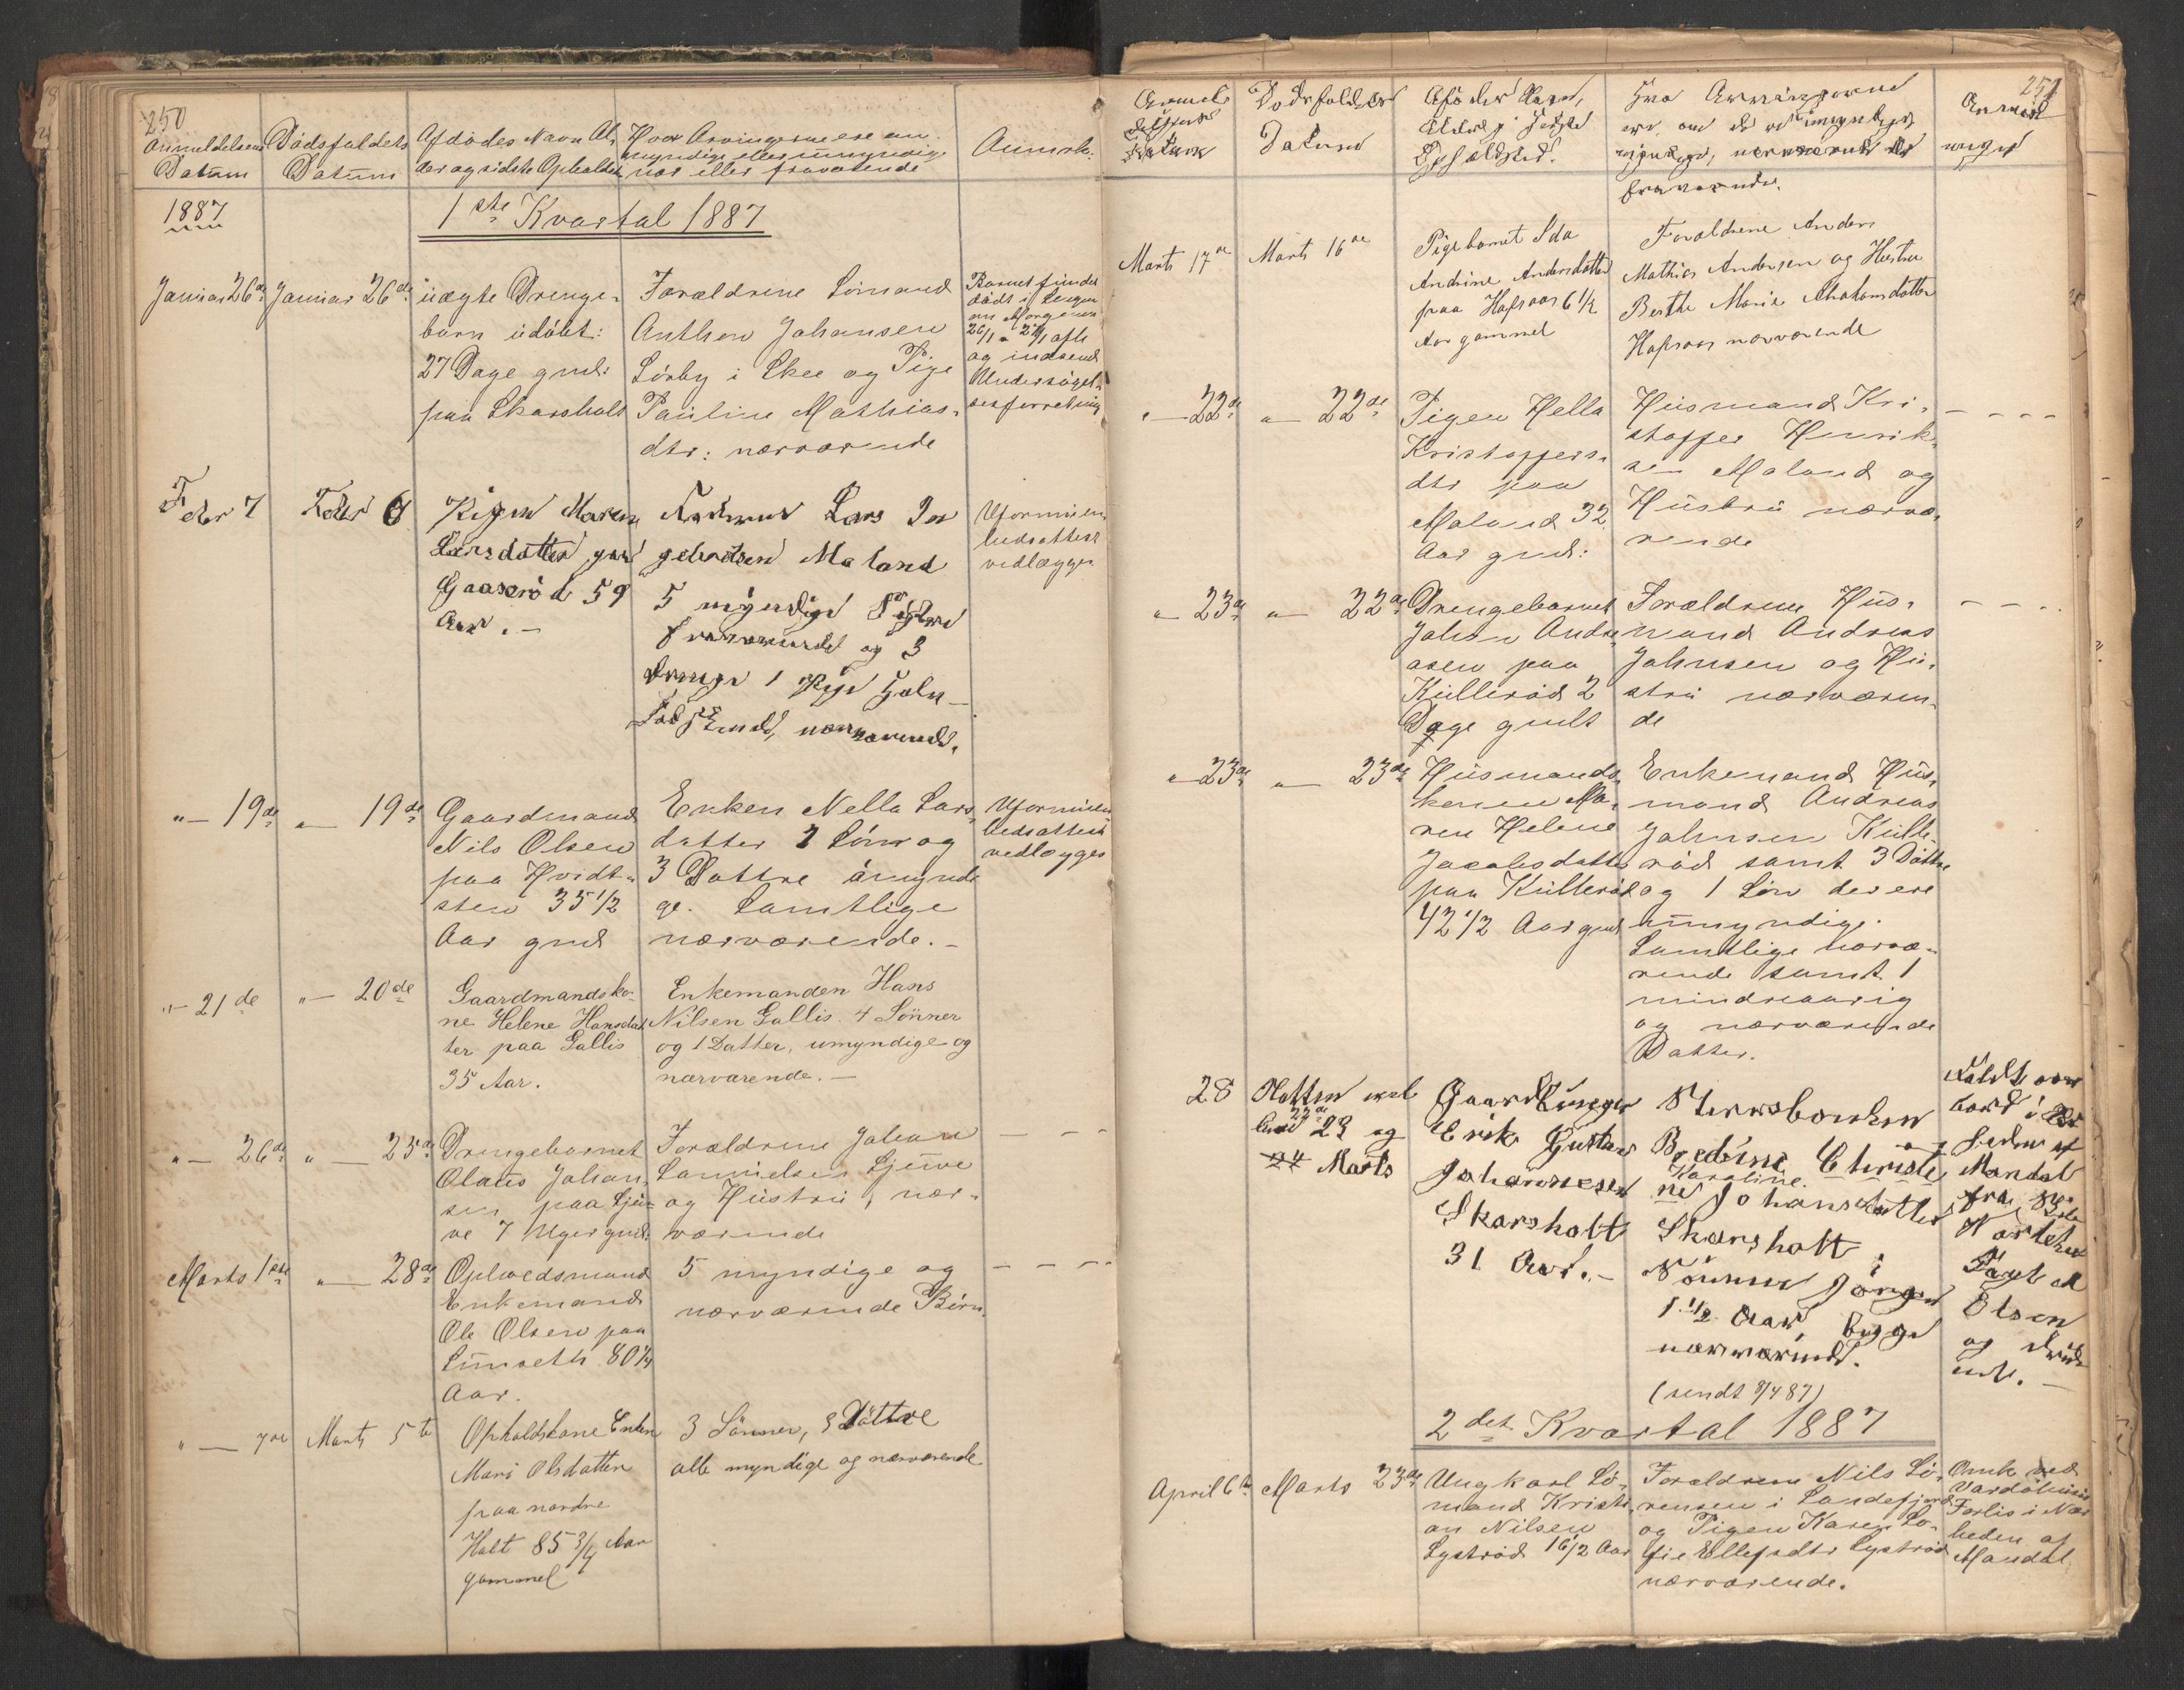 250
Anmeldelsens
Datum
Dødsfaldets
Datum
Afdødes Navn Al-
der og sidste Opholdst
Hvor Arvingerne ere om
myndige eller umyndige
nær eller fraværende
Anmrk:
1887
1ste Kvartal 1887
Januar 26de
Januar 26de
uægte Drenge-
barn udøbt:
27 Dage gml:
paa Skarsholt
Forældrene Sömand
Anthon Johansen
Lörby i Skee og Pige
Pauline Mathias-
dtr: nærværende
Barnet funder
dödt i Sengen
om Morgenen
26/1
og indsend
Undersögel-
sesforretning
Febr 7
Febr 6
Pigen Maren
Larsdatter paa
Gaaserød 59
Aar. -
Lars In
gebretsen Maland
5 myndige
fraværende og 3
Drenge 1 Pige
nærværende.
Uformuen-
hedsattest
vedlægges
"- 19de
"- 19de
Gaardmand
Nils Olsen
paa Hvidt-
sten 35 1/2
Aar gml
Enken Nella Lars-
datter 2 Sönr og
3 Döttre umyndi
ge. Samtlige
nærværende. -
Uformuen
hedsattest
vedlægges
"- 21de
"- 20de
Gaardmandsko-
ne Helene Hansdat
ter paa Gallis
35 Aar.
Enkemanden Hans
Nilsen Gallis. 4 Sönner
og 1 Datter, umyndige og
nærværende. -
"- 26de
"- 25de
Drengebarnet
Olaus Johan-
sen paa Sjue-
ve 7 Uger gml:
Forældrene Johan
Samuelsen Sjueve
og Hustru, nær-
værende
- - -
Marts 1ste
"- 28de
Oplevedsmand
Enkemand
Ole Olsen paa
80 1/4
Aar.
5 myndige og
nærværende Börn.
- - -
"- 7de
Marts 5te
Opholdskone Enken
Mari Olsdatter
paa nordre
Holt 85 3/4 Aar
gammel
3 Sönner, 3 Döttre
alle myndige og nærværende
251
Anmel-
delsens
Datum
Dødsfaldets
Datum
Afdødes Navn,
Alder og sidste
Opholdsted.
Hvo Arvingerne
ere, om de er umyndige,
myndige, nærværende eller
fraværende.
Anmærk
ninger
Marts 17de
Marts 16de
Pigebarnet Ida
Andrine Andersdatter
paa Hafsaas 6 1/2
Aar gammel
Forældrene Anders
Mathias Andersen og Hustru
Berthe Marie Abrahamsdatter
Hafsaas nærværende
"- 22de
"- 22de
Pigen Hella
Kristoffers-
dtr paa
Maland 32
Aar gml:
Husmand Kri-
stoffer Henrik-
sen Maland og
Hustru nærvæ-
rende
- - - -
"- 23de
"- 22de
Drengebarnet
Johan Andre-
asen paa
Kullerød 2
Dage gmlt
Forældrene Hus-
mand Andreas
Johnsen og Hu-
stru nærværen-
de
- - -
"- 23de
"- 23de
Husmands-
konen Ma-
ren Helene
Jacobsdatter
paa Kullerød
42 1/2 Aar gml
Enkemand Hus-
mand Andreas
Johnsen Kulle-
röd samt 3 Döttre
og 1 Sön der ere
umyndige.
Samtlige nærvæ-
rende samt 1
mindreaarig
og nærværende
Datter.
28
Natten mel-
lem 22de 23 og
24 Marts
Gaardbruger
Erik Gustav
Johannesen
Skarsholt
31 Aar. -
Styrvsboerken
Bredine Christi-
Karoline
ne Johansdatter
Skarsholt og
Sönnen Jörgen
1 1/2 Aar, begge
nærværende.
(sendt 8/4 87)
Faldt over
bord i
heden af
Mandal
fra
Olsen
og druk
nede. -
2det Kvartal 1887
April 6te
Marts 23de
Ungkarl Sö-
mand Kristi-
an Nilsen
Lystrød 16 1/2 Aar
Forældrene Nils Sö-
rensen i Sandefjord
og Pigen Karen So-
fie Ellefsdtr Lystrød
nærværende.
Omk. ved
Forlis i Nær
heden af
Mandal.